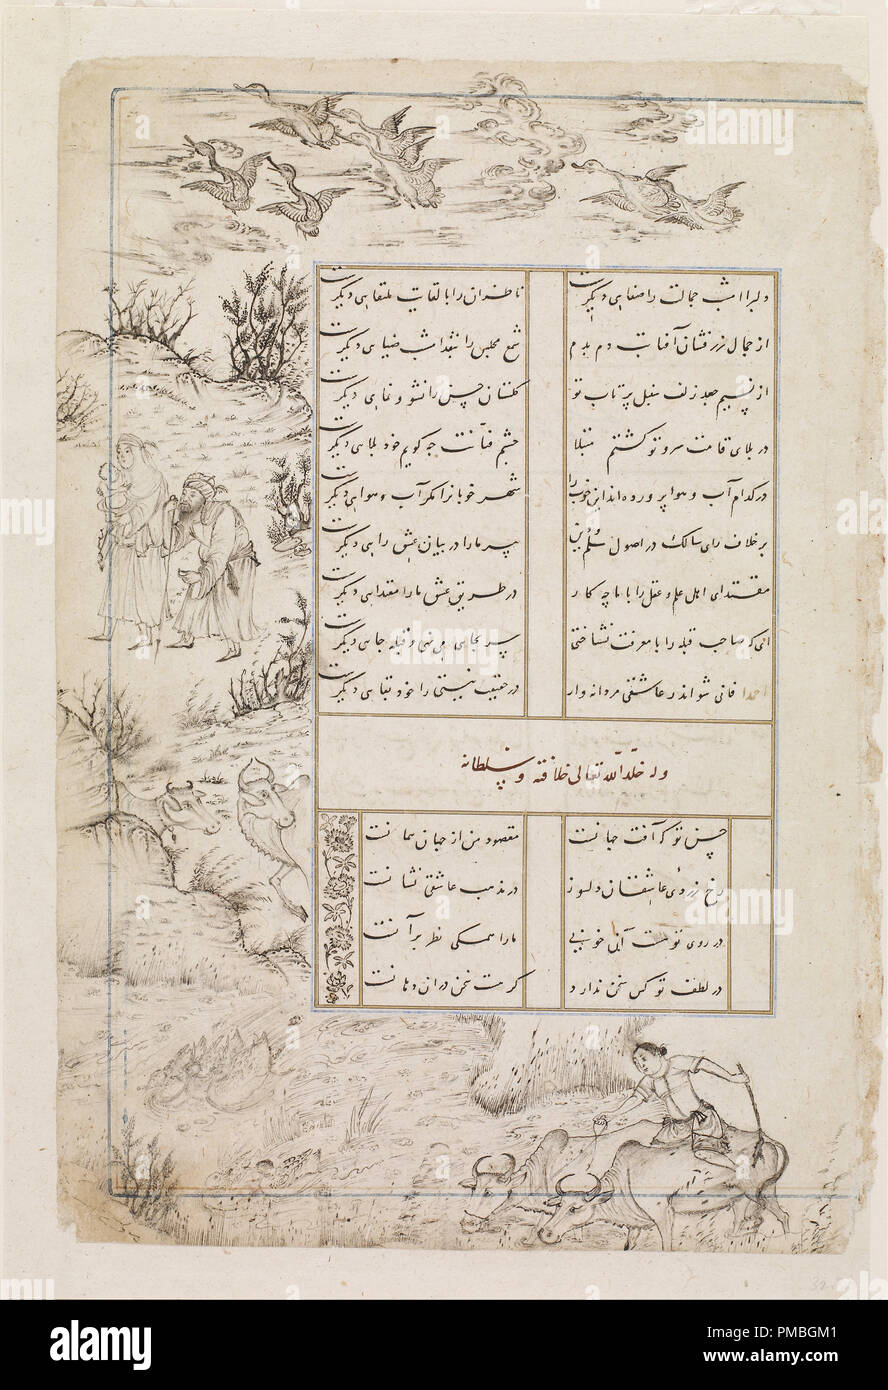 دلبرا امشب جمالت را صفایی دیگرست ناظران را با لقایت ملتقایی دیگرست
از جمال زرفشان آفتابت دم بدم شمع مجلس را بنقد امشب ضیایی دیگرست
از نسیم جعد زلف سنبل پر تاب تو گلستان حسن را نشو و نمایی دیگرست
در بلای قامت سرو تو گشتم مبتلا چشم فتانت چه گویم خود بلایی دیگرست
در کدام آب و هوا پرورده اند این خوب را شهر خوبانرا مگر آب و هوایی دیگرست
بر خلاف رای سالک در اصول علم و دین پیر ما را در بیان عشق رایی دیگرست
مقتدای اهل علم و عقل را با ما چه کار در طریق عشق ما را مقتدایی دیگرست
ای که صاحب قبله را با معرفت نشناختی سر بجایی می نهی و قبله جایی دیگرست
احمدا فانی شو اندر عاشقی مردانه وار در حقیقت نیستی را خود بقایی دیگرست
وله خلّد الله تعالی خلافته و سلطانه
حسن تو که آفت جهانست مقصود من از جهان همانست
رخ زردی عاشقان دلسوز در مذهب عاشقی نشانست
در روی تو هست آنی خوبی ما را همگی نظر بر آنست
در لطف تو کس سخن ندارد گر هست سخن در آن دهانست
alamy
Image ID: PMBGM1
www.alamy.com